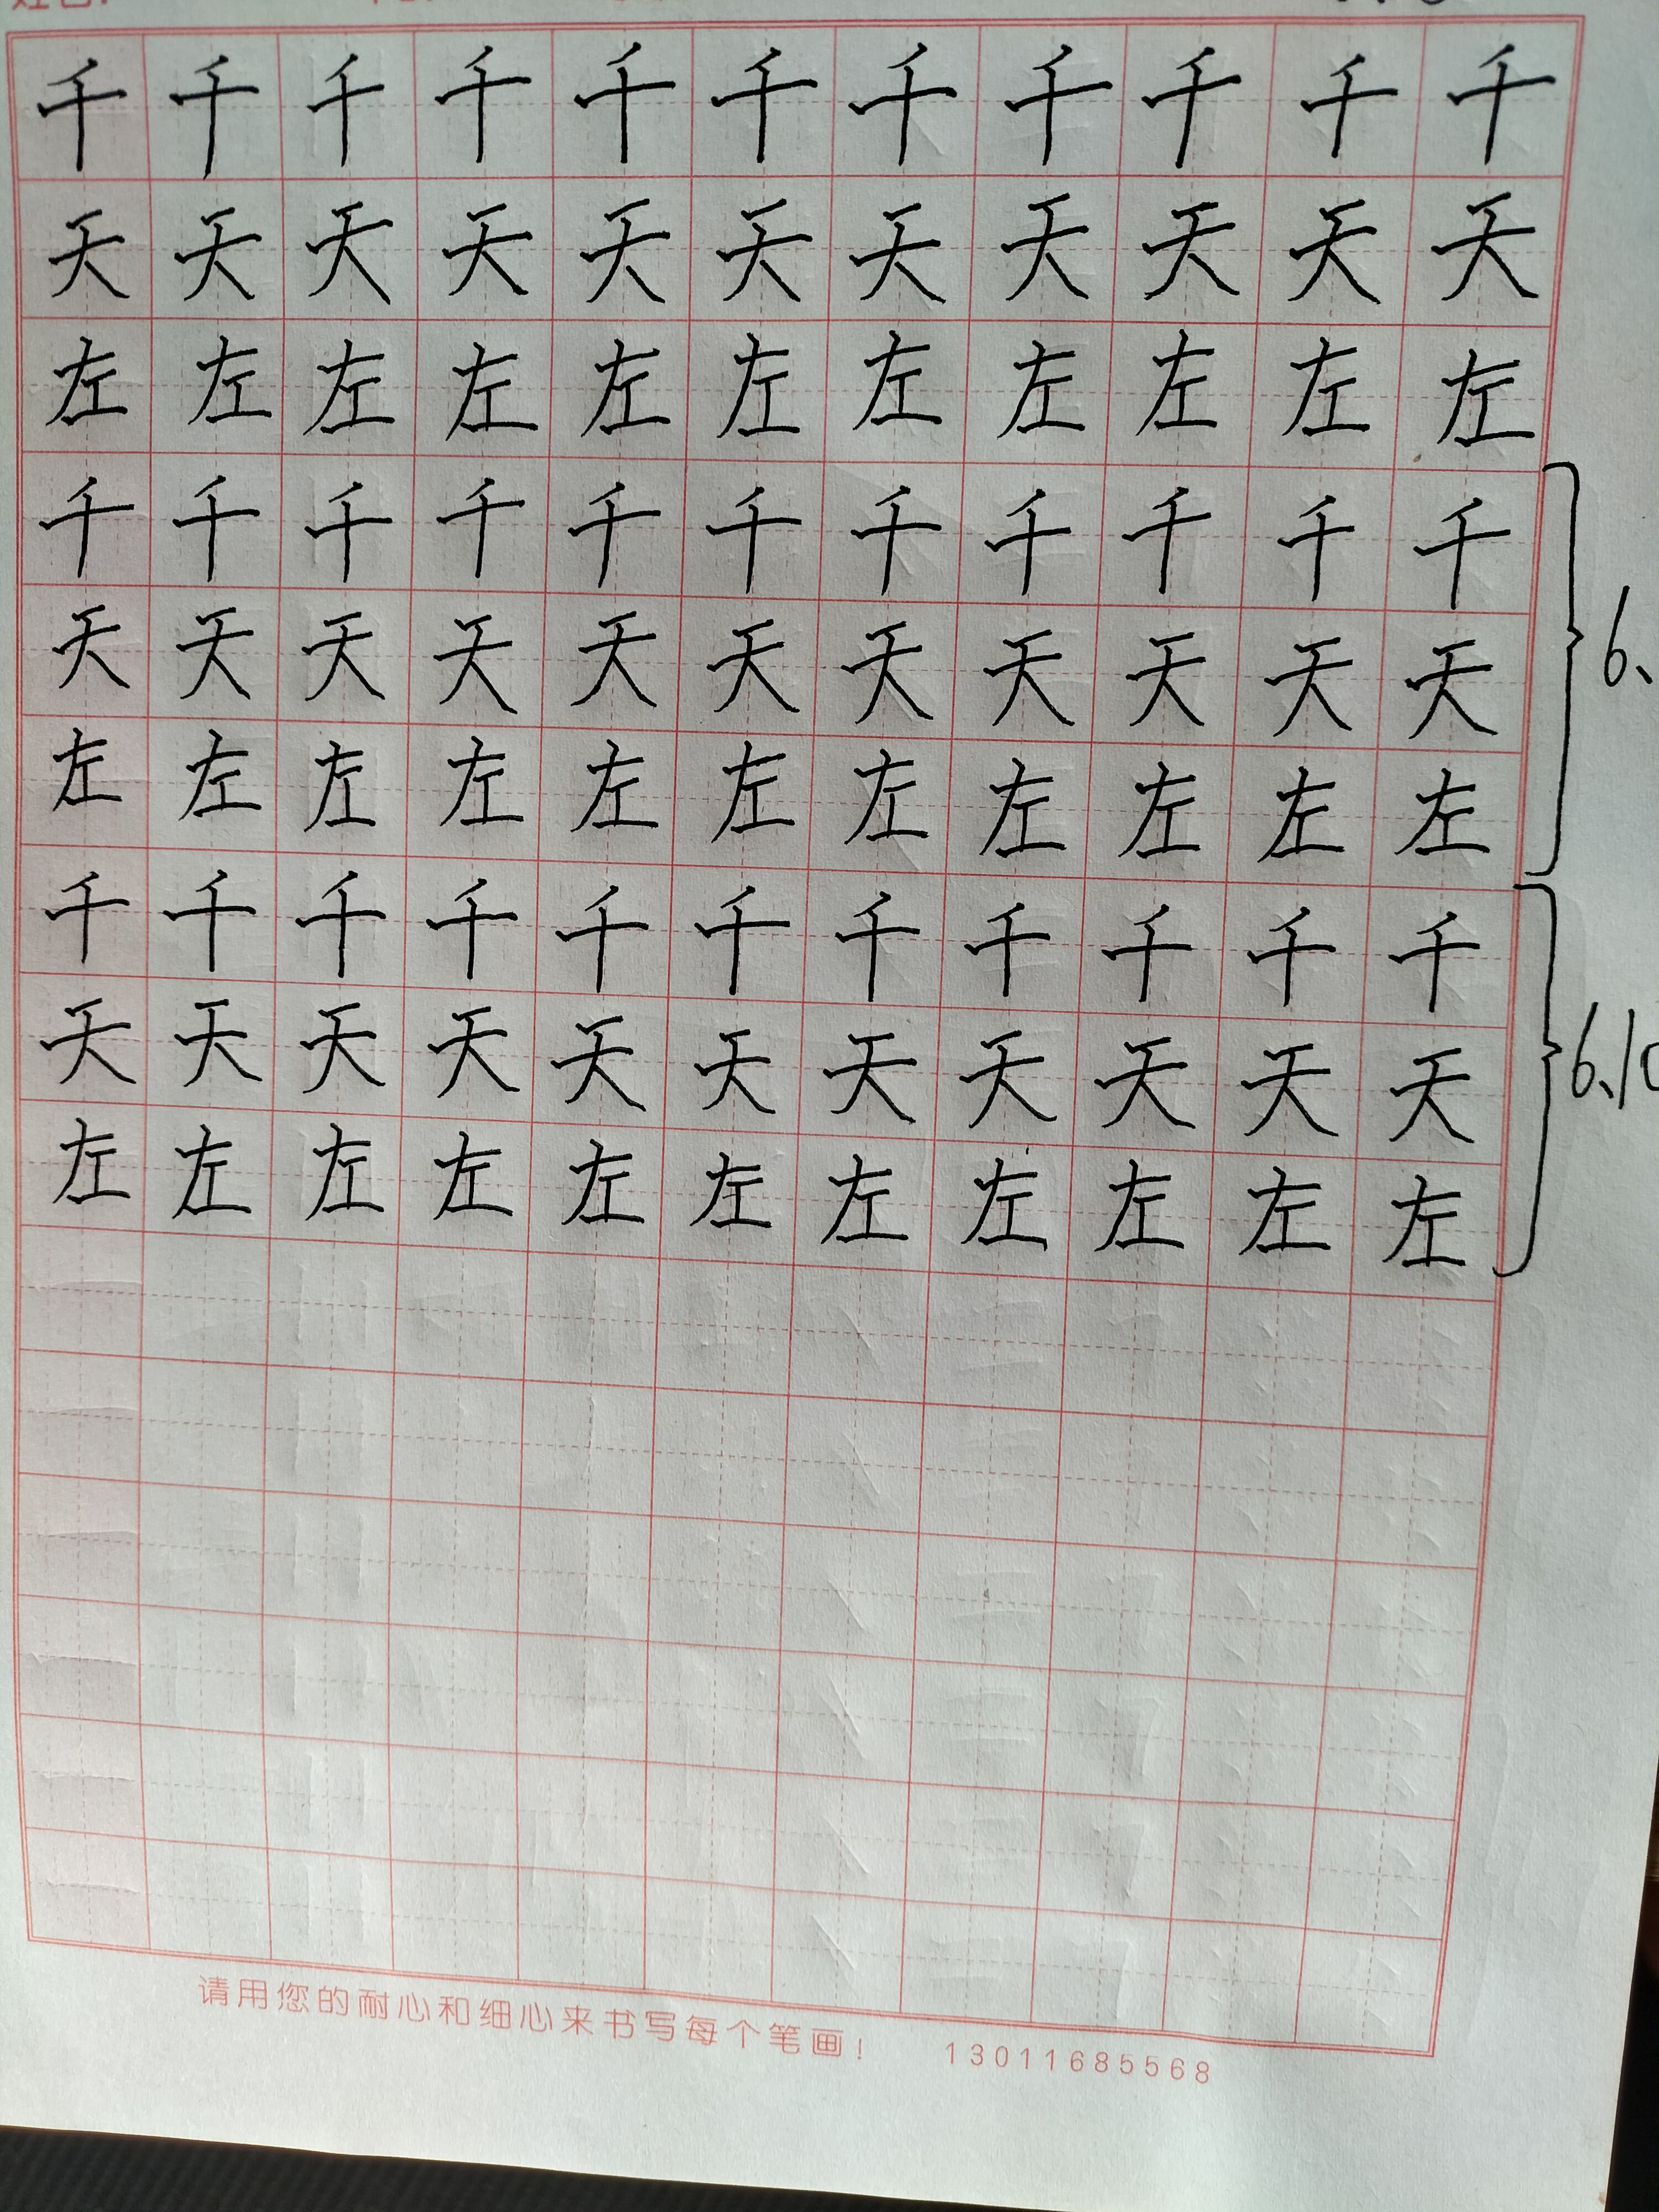 千千千千千千千千千千千
天天天天天天天天天天天
左左左左左左左左左左左
千千千千千千千千千千千
天天天天天天天天天天天
6.
左左左左左左左左左左左
千千千千千千千千千千千
天天天天天天天天天天天
6.10
左左左左左左左左左左左
请用您的耐心和细心来书写每个笔画! 13011685568